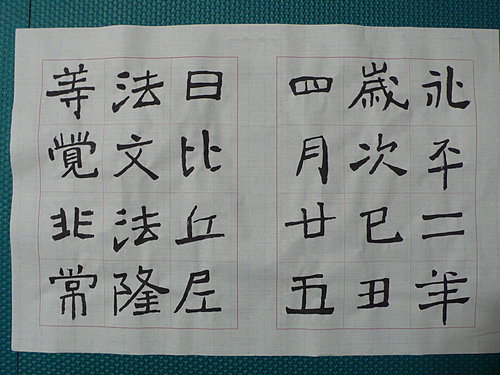 永平二年
歲次己丑
四月廿五
日比丘尼
法文法隆
等覺非常